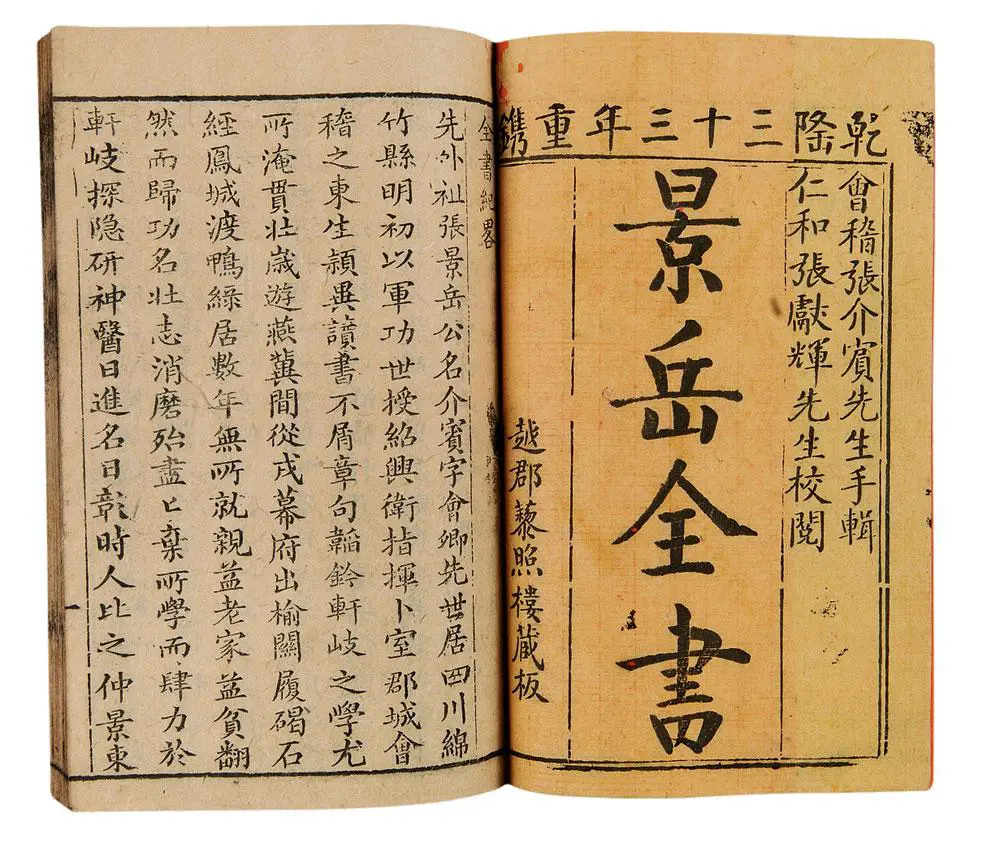 乾隆三十三年重鐫
會稽張介賓先生手輯
仁和張獻輝先生校閱
景岳全書
越郡藜照樓藏板
全書紀畧
先外祖張景岳公名介賓字會卿先世居四川綿
竹縣明初以軍功世授紹興衛指揮卜室郡城會
稽之東生頴異讀書不屑章句韜鈐軒岐之學尤
所淹貫壯歲遊燕冀間從戎幕府出榆關履碣石
經鳳城渡鴨綠居數年無所就親益老家益貧翻
然而歸功名壯志消磨殆盡匕棄所學而肆力於
軒岐探隐研神醫日進名日彰時人比之仲景東
一